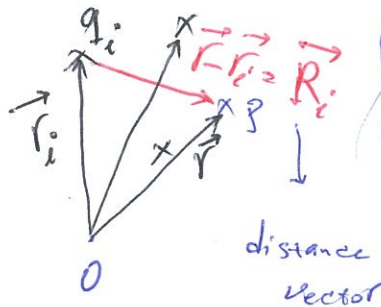 q⃗_i
r⃗ - r⃗_i = R⃗_i
r⃗_i
r⃗
P
O
distance
vector